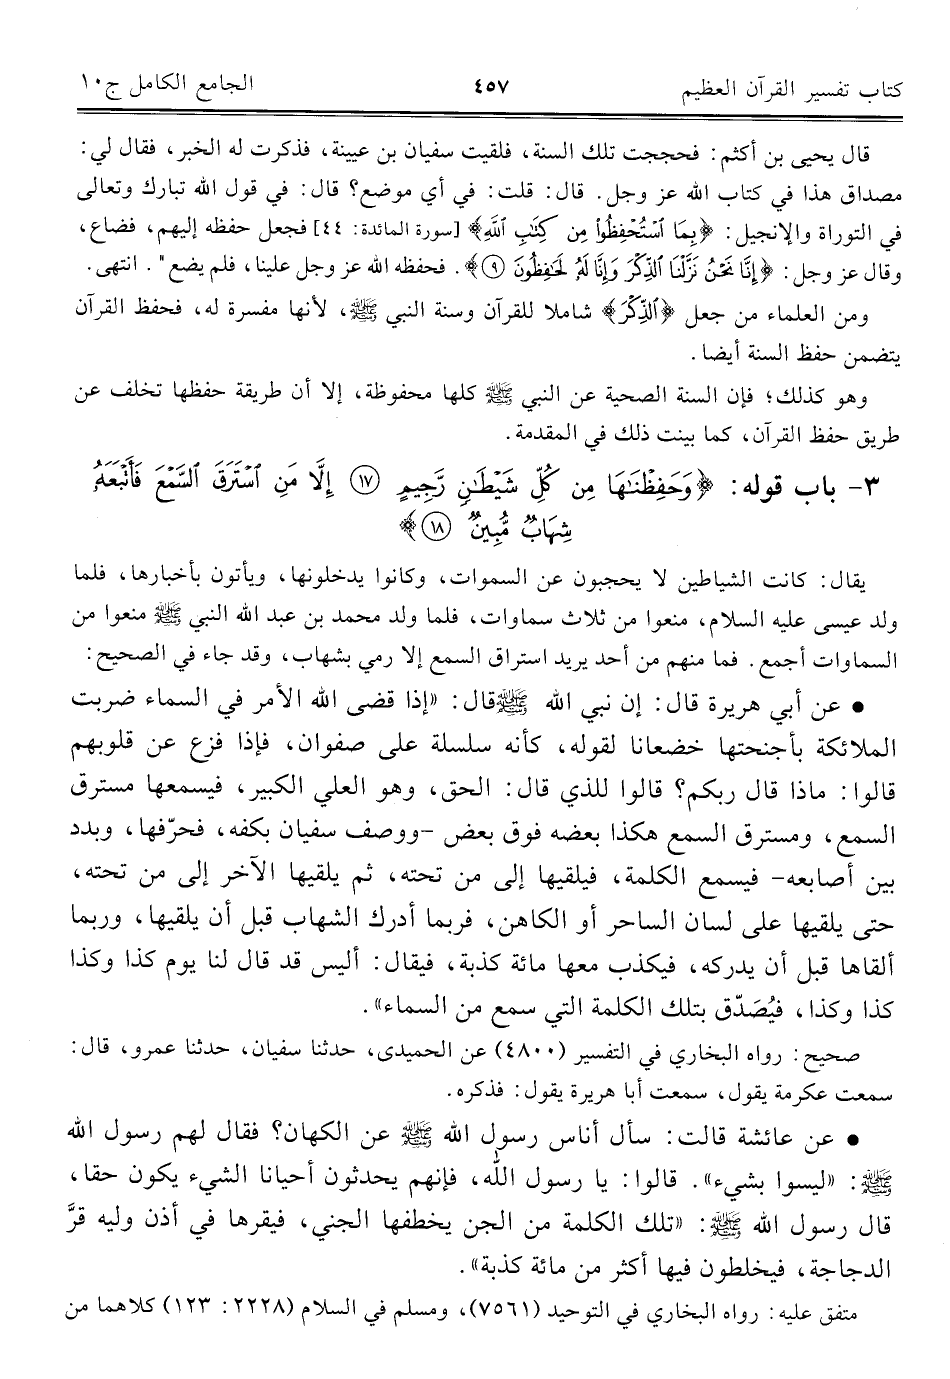 كتاب تفسير القرآن العظيم ٤٥٧ الجامع الكامل ج١٠
قال يحيى بن أكثم: فحججت تلك السنة، فلقيت سفيان بن عيينة، فذكرت له الخبر، فقال لي:
مصداق هذا في كتاب الله عز وجل. قال: قلت: في أي موضع؟ قال: في قول الله تبارك وتعالى
في التوراة والإنجيل: ﴿بِمَا ٱسْتُحْفِظُوا۟ مِن كِتَٰبِ ٱللَّهِ﴾ [سورة المائدة: ٤٤] فجعل حفظه إليهم، فضاع،
وقال عز وجل: ﴿إِنَّا نَحْنُ نَزَّلْنَا ٱلذِّكْرَ وَإِنَّا لَهُۥ لَحَٰفِظُونَ ۝٩﴾. فحفظه الله عز وجل علينا، فلم يضع". انتهى.
ومن العلماء من جعل ﴿ٱلذِّكْرَ﴾ شاملا للقرآن وسنة النبي ﷺ، لأنها مفسرة له، فحفظ القرآن
يتضمن حفظ السنة أيضا.
وهو كذلك؛ فإن السنة الصحية عن النبي ﷺ كلها محفوظة، إلا أن طريقة حفظها تخلف عن
طريق حفظ القرآن، كما بينت ذلك في المقدمة.
٣- باب قوله: ﴿وَحَفِظْنَٰهَا مِن كُلِّ شَيْطَٰنٍ رَّجِيمٍ ۝١٧ إِلَّا مَنِ ٱسْتَرَقَ ٱلسَّمْعَ فَأَتْبَعَهُۥ
شِهَابٌ مُّبِينٌ ۝١٨﴾
يقال: كانت الشياطين لا يحجبون عن السموات، وكانوا يدخلونها، ويأتون بأخبارها، فلما
ولد عيسى عليه السلام، منعوا من ثلاث سماوات، فلما ولد محمد بن عبد الله النبي ﷺ منعوا من
السماوات أجمع. فما منهم من أحد يريد استراق السمع إلا رمي بشهاب، وقد جاء في الصحيح:
• عن أبي هريرة قال: إن نبي الله ﷺ قال: «إذا قضى الله الأمر في السماء ضربت
الملائكة بأجنحتها خضعانا لقوله، كأنه سلسلة على صفوان، فإذا فزع عن قلوبهم
قالوا: ماذا قال ربكم؟ قالوا للذي قال: الحق، وهو العلي الكبير، فيسمعها مسترق
السمع، ومسترق السمع هكذا بعضه فوق بعض -ووصف سفيان بكفه، فحرّفها، وبدد
بين أصابعه- فيسمع الكلمة، فيلقيها إلى من تحته، ثم يلقيها الآخر إلى من تحته،
حتى يلقيها على لسان الساحر أو الكاهن، فربما أدرك الشهاب قبل أن يلقيها، وربما
ألقاها قبل أن يدركه، فيكذب معها مائة كذبة، فيقال: أليس قد قال لنا يوم كذا وكذا
كذا وكذا، فيُصَدّق بتلك الكلمة التي سمع من السماء».
صحيح: رواه البخاري في التفسير (٤٨٠٠) عن الحميدى، حدثنا سفيان، حدثنا عمرو، قال:
سمعت عكرمة يقول، سمعت أبا هريرة يقول: فذكره.
• عن عائشة قالت: سأل أناس رسول الله ﷺ عن الكهان؟ فقال لهم رسول الله
ﷺ: «ليسوا بشيء». قالوا: يا رسول الله، فإنهم يحدثون أحيانا الشيء يكون حقا،
قال رسول الله ﷺ: «تلك الكلمة من الجن يخطفها الجني، فيقرها في أذن وليه قرَّ
الدجاجة، فيخلطون فيها أكثر من مائة كذبة».
متفق عليه: رواه البخاري في التوحيد (٧٥٦١)، ومسلم في السلام (٢٢٢٨: ١٢٣) كلاهما من